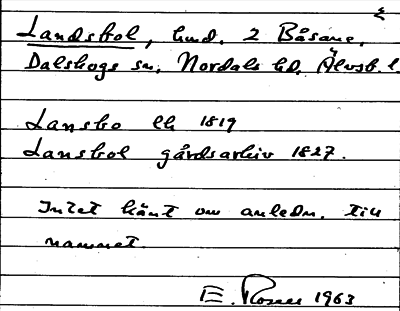 Landsbol, und. 2 Båsane,
Dalskogs sn, Nordals hd, Älvsb. l.
Lansbo lk 1819
Lansbol gårdsarkiv 1827.
Intet känt om anledn. till
namnet.
E. Rosell 1963